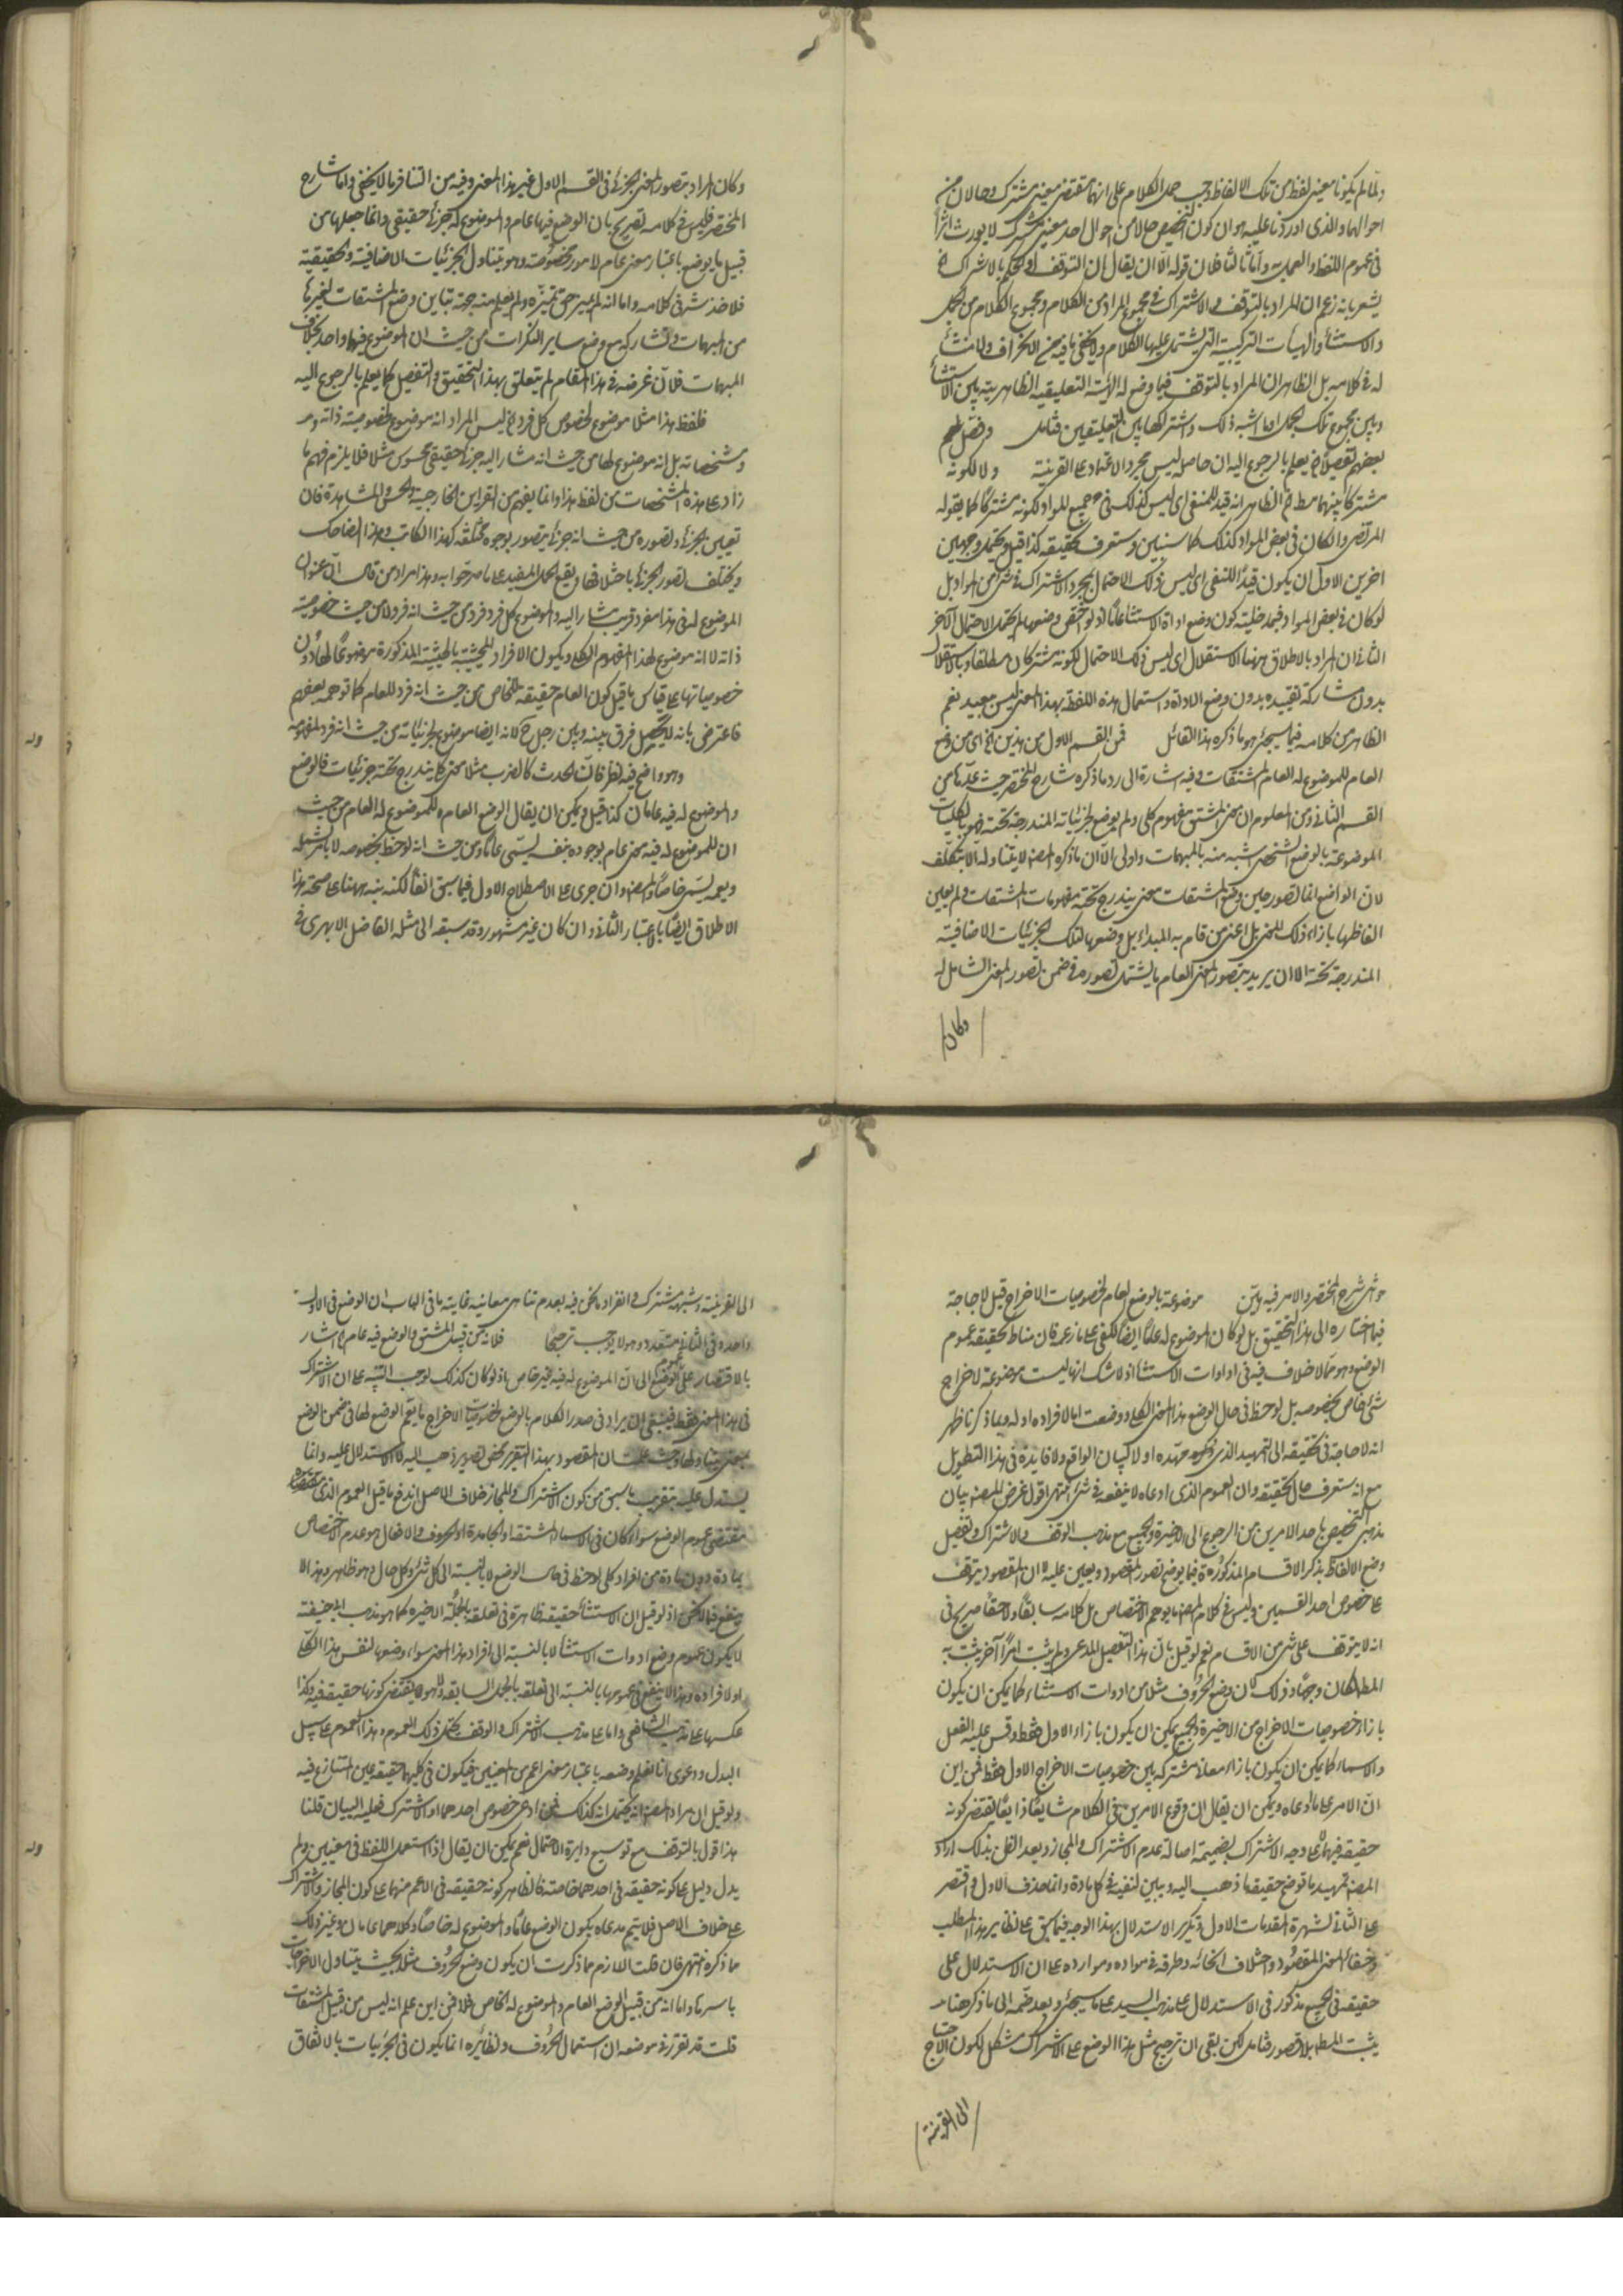 ولما لم يكونا معنى لفظ من تلك الالفاظ وجب حمل الكلام على انهما مقتضى معنى مشترك وحالان من
احوالهما والذى اوردنا عليه هو ان كون التخصيص حالا من احوال احد معنى مشترك لا يورث اثرا
فى عموم اللفظ والعمل به واما ثالثا فلان قوله الا ان يقال ان التوقف فى الحكم بالاشتراك
يشعر بانه زعم ان المراد بالتوقف والاشتراك فى مجموع المراد من الكلام ومجموع الكلام من الجمل
والاستثناء والهيئات التركيبية التى يشتمل عليها الكلام ولا يخفى ما فيه من الانحراف ولا منشأ
له فى كلامه بل الظاهر ان المراد بالتوقف فيما وضع له الهيئة التعليقية الظاهرية بين الاستثناء
وبين مجموع تلك الجمل او ما اشبه ذلك واشتراكها بين التعليقين فتامل وفصل
بعضهم تفصيلا يعلم بالرجوع اليه ان حاصله ليس مجرد الاعتماد على القرينة ولا لكونه
مشتركا بينهما مط الظاهر انه قيد للمنفى اى ليس كذلك فى جميع المواد لكونه مشتركا كما يقوله
المرتضى وان كان فى بعض المواد كذلك كما سنبين وستعرف تحقيقه كذا قيل ويحتمل وجهين
اخرين الاول ان يكون قيدا للنفى اى ليس ذلك الاحتمال بمجرد الاشتراك فى شئ من المواد بل
لو كان فى بعض المواد فبمدخلية كون وضع اداة الاستثناء عاما اذ لو اختص وضعها لم يحتمل الاحتمال الآخر
الثانى ان المراد بالاطلاق ههنا الاستقلال اى ليس ذلك الاحتمال لكونه مشتركا مطلقا وبالاستقلال
بدون مشاركة تقييده بدون وضع الاداة واستعمال هذه اللفظة بهذا المعنى ليس ببعيد نعم
الظاهر من كلامه فيما سيجئ هو ما ذكره هذا القائل فمن القسم الاول من هذين اى من وضع
العام للموضوع له العام المشتقات فيه اشارة الى رد ما ذكره شارح المختصر حيث عدها من
القسم الثانى ومن المعلوم ان معنى المشتق مفهوم كلى ولم يوضع لجزئياته المندرجة تحته فهو بالكليات
الموضوعة بالوضع الشخصى اشبه منه بالمبهمات واولى الا ان ما ذكره المص لا يتناوله الا بتكلف
لان الواضع انما تصور حين وضع المشتقات معنى يندرج تحته مفهومات المشتقات ولم يعين
الفاظها بازاء ذلك المعنى بل اعنى من قام به المبدأ بل وضعها لتلك الجزئيات الاضافية
المندرجة تحته الا ان يريد بتصور المعنى العام ما يشتمل تصوره فى ضمن تصور المعنى الشامل له
وكان
وكان المراد بتصور المعنى الجزئى فى القسم الاول غير هذا المعنى وفيه من التنافر ما لا يخفى واما شارح
المختصر فليس فى كلامه تصريح بان الوضع فيها عام والموضوع له جزئى حقيقى وانما جعلها من
قبيل ما يوضع باعتبار معنى عام لامور مخصوصة وهو يتناول الجزئيات الاضافية والحقيقية
فلا خدشة فى كلامه واما انه لم يميز حق تميزه ولم يعلم منه جهة تباين وضع المشتقات لغيرها
من المبهمات وتشاركه مع وضع ساير النكرات من حيث ان الموضوع فيها واحد بخلاف
المبهمات فلان غرضه فى هذا المقام لم يتعلق بهذا التحقيق والتفصيل كما يعلم بالرجوع اليه
فلفظ هذا مثلا موضوع لخصوص كل فرد ليس المراد انه موضوع لخصوصية ذاته
ومشخصاته بل انه موضوع لها من حيث انه مشار اليه جزئى حقيقى محسوس مثلا فلا يلزم فهم ما
زاد على هذه المشخصات من لفظ هذا وانما يفهم من القراين الخارجية والحس والمشاهدة فان
تعيين الجزئى وتصوره من حيث انه جزئى يتصور بوجوه مختلفة كهذا الكاتب وهذا الضاحك
ويختلف تصور الجزئى باختلافها ويقع الحمل المفيد على ما صرحوا به وهذا مراد من قال ان عنوان
الموضوع له فى هذا مفرد قريب مشار اليه والموضوع كل فرد فرد من حيث انه فرد لا من حيث خصوصية
ذاته لا انه موضوع لهذا المفهوم الكلى ويكون الافراد المحيثة بالحيثية المذكورة موضوعا لها دون
خصوصياتها على قياس ما قيل كون العام حقيقة للخاص من حيث انه فرد للعام كما توهمه بعضهم
فاعترض بانه لا يحصل فرق بينه وبين رجل ح لانه ايضا موضوع لجزئياته من حيث انه فرد لمفهومه
وهو واضح فيه نظر فان الحدث كالضرب مثلا معنى كلى يندرج تحته جزئيات فالوضع
والموضوع له فيه عامان كذا قيل ويمكن ان يقال الوضع العام للموضوع له العام من حيث
ان للموضوع له فيه معنى عام بوجوده بنفسه يسمى عاما ومن حيث انه لوحظ بخصوصه لا بما يشمله
ويعمه يسمى خاصا والمص وان جرى على الاصطلاح الاول فيما سبق انفا لكنه نبه ههنا على صحة هذا
الاطلاق ايضا بالاعتبار الثانى وان كان غير مشهور وقد سبقه الى مثله الفاضل الابهرى فى
حواشى شرح المختصر والامر فيه هين موضوعة بالوضع العام لخصوصيات الاخراج قيل لا حاجة
فيما اختاره الى هذا التحقيق بل لو كان الموضوع له عاما ايضا لكفى على ما زعمه فان مناط تحقيقه عموم
الوضع وهو مما لا خلاف فيه فى ادوات الاستثناء اذ لا شك انها ليست موضوعة لاخراج
شئ خاص بخصوصه بل لوحظ فى حال الوضع هذا المعنى الكلى ووضعت اما لافراده او له وبما ذكرنا ظهر
انه لا حاجة فى تحقيقه الى التمهيد الذى مهده اولا لبيان الواقع ولا فايدة فى هذا التطويل
مع انه ستعرف حال تحقيقه وان العموم الذى ادعاه لا ينفعه فى شئ انتهى اقول غرض المص بيان
مذهبى التخصيص باحد الامرين من الرجوع الى الاخيرة والجميع مع مذهب الوقف والاشتراك وتفصيل
وضع الالفاظ بذكر الاقسام المذكورة مما يوضح تصور المقصود ويعين عليه لا ان المقصود يتوقف
على خصوص احد القسمين وليس فى كلام المص ما يوهم الاختصاص بل كلامه سابقا ولاحقا صريح فى
انه لا يتوقف على شئ من الاقسام نعم لو قيل بان هذا التفصيل المدعى ولم يثبت امرا آخر يثبت به
المط لكان وجها وذلك لان وضع الحروف مثلا من ادوات الاستثناء كما يمكن ان يكون
بازاء خصوصيات الاخراج من الاخيرة والجميع يمكن ان يكون بازاء الاول فقط وقس عليه الفعل
والاسماء كما يمكن ان يكون بازاء معان مشتركة بين خصوصيات الاخراج الاول فقط فمن اين
ان الامر على ما ادعاه ويمكن ان يقال ان وقوع الامرين فى الكلام شايعا ذايعا يقتضى كونه
حقيقة فيهما على وجه الاشتراك بضميمة اصالة عدم الاشتراك والمجاز وبعد النقل بذلك اراد
المص تمهيد ما توضح حقيقة ما ذهب اليه ويبين لنفيه فى كل مادة وانما حذف الاول واقتصر
على الثانى لشهرة المقدمات الاول وتكرر الاستدلال بهذا الوجه فيما سبق على نظاير هذا المطلب
وخفاء المعنى المقصود واختلاف انحائه وطرقه فى مواده وموارده على ان الاستدلال على
حقيقة فى الجميع مذكور فى الاستدلال على مذهب السيد على ما سيجئ وبعد ضمه الى ما ذكر هنا
يثبت المط بلا قصور فتامل لكن بقى ان ترجيح مثل هذا الوضع على الاشتراك مشكل لكون الاحتياج
الى القرينة
الى القرينة وشبهه مشترك والانفراد ممكن فيه لعدم تناهى معانيه غاية ما فى الباب ان الوضع فى الاول
واحد وفى الثانى متعدد وهو لا يوجب ترجيحا فلانه من قبيل المشتق والوضع فيه عام اشار
بالاقتصار على عموم الوضع الى ان الموضوع له فيه غير خاص اذ لو كان كذلك لوجب التنبيه على ان الاشتراك
فى هذا المعنى فقط فينبغى ان يراد فى صدر الكلام بالوضع لخصوصيات الاخراج ما يعم الوضع لها فى ضمن الوضع
لمعنى يتناولها وحيث علمت ان المقصود بهذا التقرير محض تصوير مذهب اليه لا الاستدلال عليه وانما
يستدل عليه بتقريب ما سبق من كون الاشتراك والمجاز خلاف الاصل اندفع ما قيل العموم الذى
مقتضى عموم الوضع سواء كان فى الاسماء المشتقة او الجامدة او الحروف والافعال هو عدم الاختصاص
بمادة دون مادة من افراد كلى لوحظ فى حال الوضع لا بالنسبة الى كل شئ وكل حال وهو ظاهر وهذا لا
ينفع فيما نحن اذ لو قيل ان الاستثناء حقيقة ظاهرة فى تعلقه بالجملة الاخيرة كما هو مذهب ابى حنيفة
لا يكون عموم وضع ادوات الاستثناء الا بالنسبة الى افراد هذا المعنى سواء وضعها لنفس هذا الكلى
او لافراده وهذا لا ينفع فى عمومها بالنسبة الى تعلقه بالجمل السابقة ولا هو مقتضى كونها حقيقة فيه وكذا
عكسها على مذهب الشافعى واما على مذهب الاشتراك والوقف يحتمل ذلك العموم وهذا العموم على سبيل
البدل ودعوى انا نعلم وضعه باعتبار معنى اعم من المعنيين فيكون فى كليهما حقيقة عين المتنازع فيه
ولو قيل ان مراد المص انه يحتمل انه كذلك فمن ادعى خصوص احدهما او الاشتراك فعليه البيان قلنا
هذا قول بالتوقف مع توسيع دايرة الاحتمال نعم يمكن ان يقال اذا استعمل اللفظ فى معنيين ولم
يدل دليل على كونه حقيقة فى احدهما خاصة فالظاهر كونه حقيقة فى الاعم منهما على كون المجاز والاشتراك
على خلاف الاصل فلا يتم مدعاه بكون الوضع عاما والموضوع له خاصا وكلاهما عامان وغير ذلك
مما ذكره انتهى فان قلت اللازم مما ذكرت ان يكون وضع الحروف مثلا بحيث يتناول الاخراجات
باسرها واما انه من قبيل الوضع العام والموضوع له الخاص فلا فمن اين علم انه ليس من قبيل المشتقات
قلت قد تقرر فى موضعه ان استعمال الحروف ونظائره انما يكون فى الجزئيات بالاتفاق